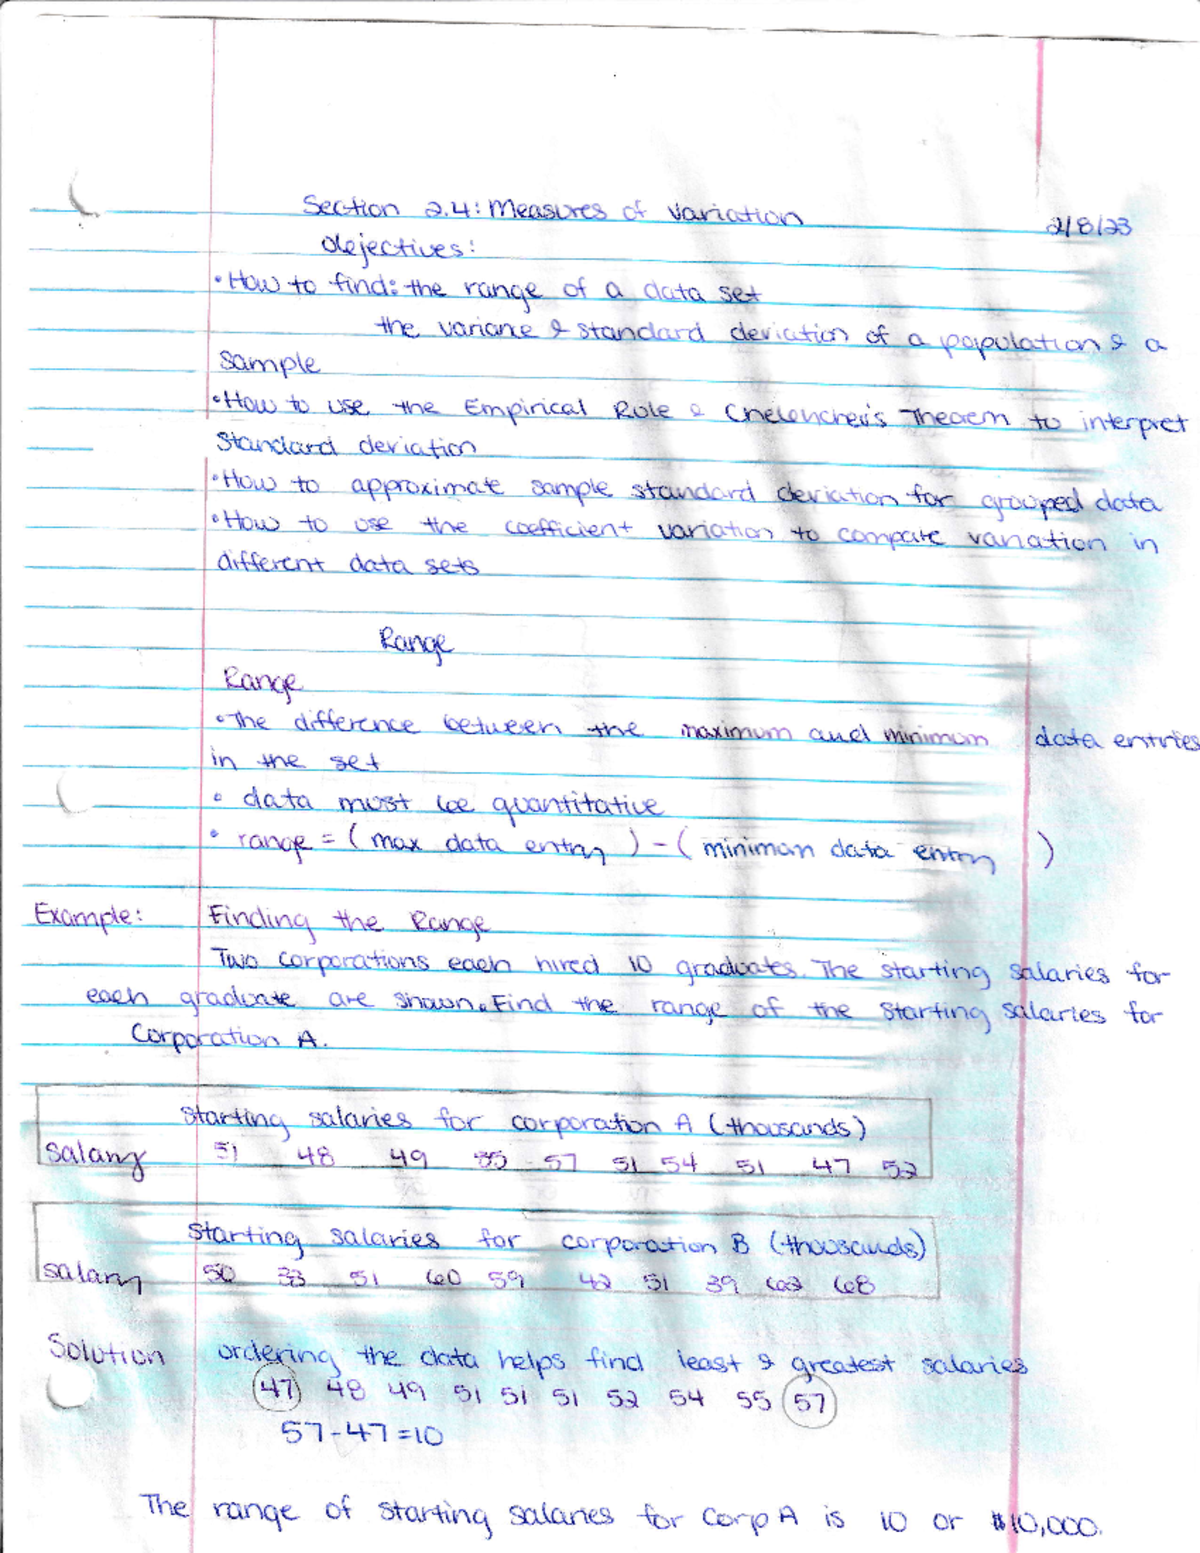 Section 2.4: Measures of Variation 2/8/23
Objectives:
• How to find: the range of a data set
the variance & standard deviation of a population & a
sample
• How to use the Empirical Rule & Theorem to interpret
Standard deviation
• How to approximate sample standard deviation for grouped data
• How to use the coefficient variation to compare variation in
different data sets
Range
Range
• The difference between the maximum and minimum data entries
in the set
• data must be quantitative
• range = ( max data entry ) - ( minimum data entry )
Example: Finding the Range
Two corporations each hired 10 graduates. The starting salaries for
each graduate are shown. Find the range of the starting salaries for
Corporation A.
Starting salaries for corporation A (thousands)
Salary 51 48 49 55 57 51 54 51 47 52
Starting salaries for corporation B (thousands)
salary 50 33 51 60 59 42 51 39 62 68
Solution ordering the data helps find least & greatest salaries
47 48 49 51 51 51 52 54 55 57
57-47=10
The range of starting salaries for Corp A is 10 or $10,000.